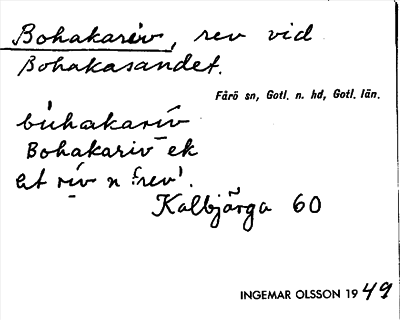 Bohakariv, rev vid
Bohakasandet.
Fårö sn, Gotl. n. hd, Gotl. län.
bùhakarív
Bohakariv ek
et rív n 'rev'.
Kalbjärga 60
INGEMAR OLSSON 1949